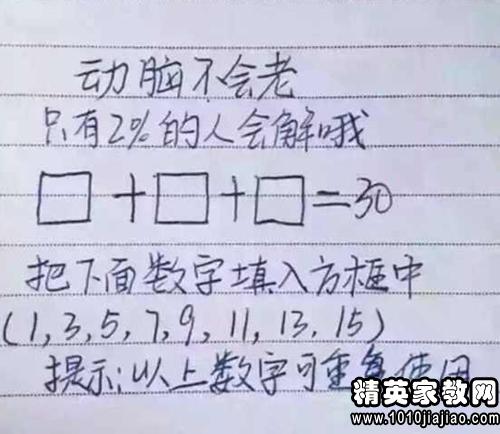 动脑不会老
只有2%的人会解哦
□+□+□=30
把下面数字填入方框中
(1,3,5,7,9,11,13,15)
提示:以上数字可重复使用
精英家教网
www.1010jiajiao.com